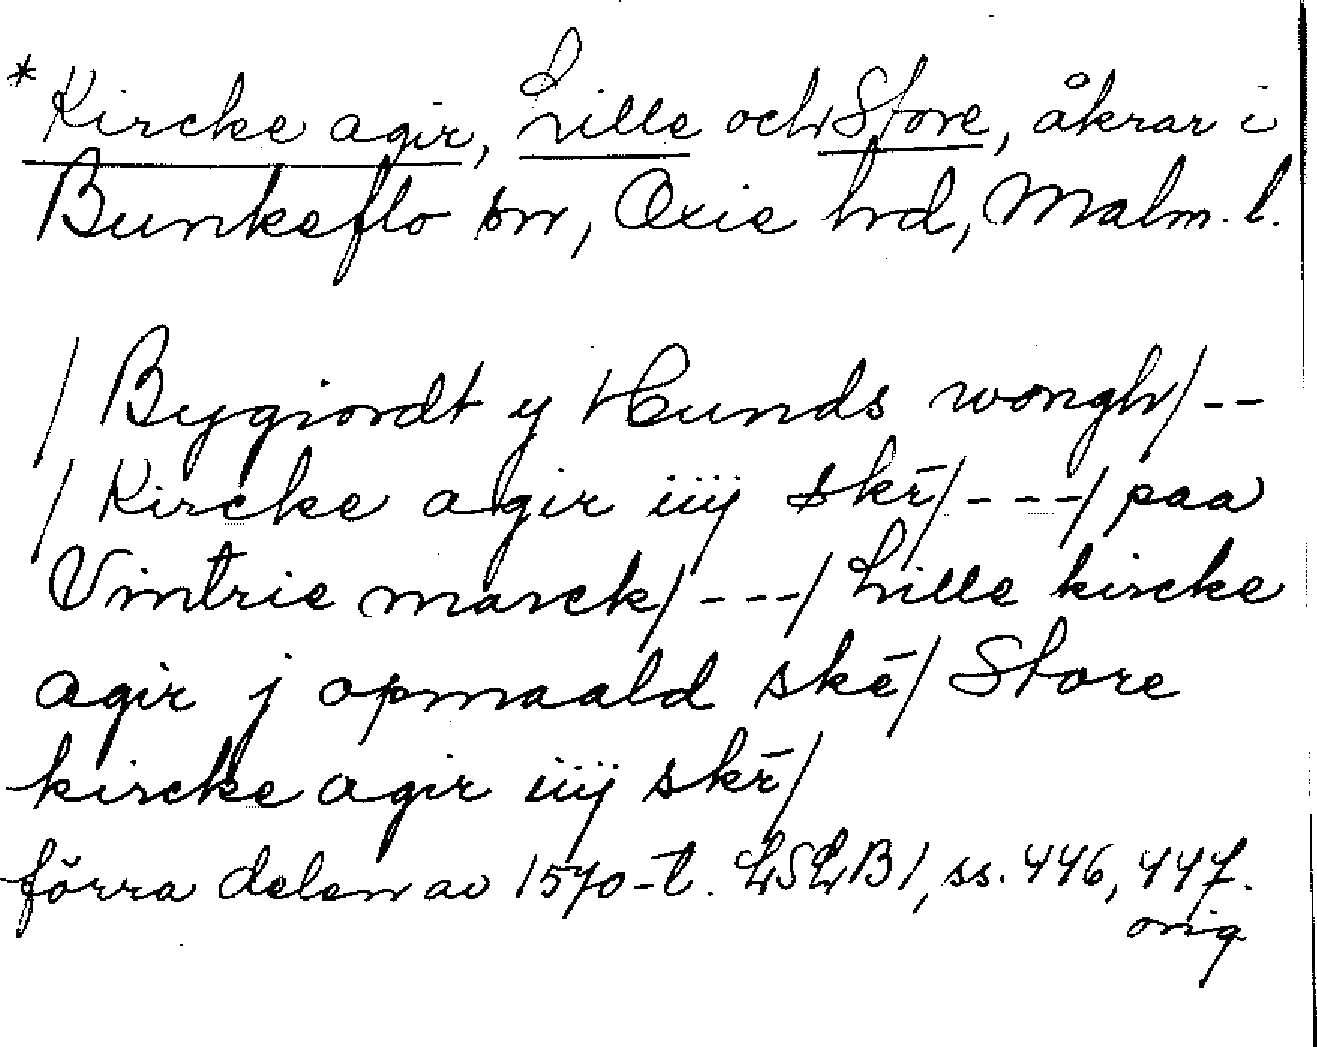 * Kircke agir, Lille och Store, åkrar i
Bunkeflo sn, Oxie hrd, Malm. l.
/ Bygiordt y Hunds wongh / --
/ Kircke agir iiij skr̄ / --- / paa
Vintrie marck / --- / Lille kircke
agir j opmaald skē / Store
kircke agir iiij skr̄ /
förra delen av 1570-t. LSLB 1, ss. 446, 447.
orig